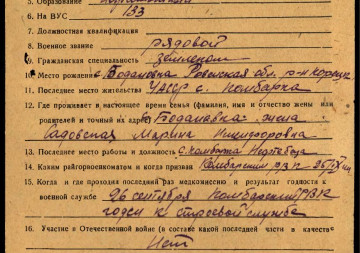 5. Образование
6. На ВУС 133
7. Должностная квалификация
8. Военное звание рядовой
9. Гражданская специальность
10. Место рождения с. Богдановка Ровенская обл. р-н Корецк
11. Последнее место жительства УАССР с. Камбарка
12. Где проживает в настоящее время семья (фамилия, имя и отчество жены или
родителей и точный их адрес) жена
Садовская Марина Никифоровна
13. Последнее место работы и должность с. Камбарка Нефтебаза
14. Каким райгорвоенкоматом и когда призван Камбарским РВК
15. Когда и где проходил последний раз медкомиссию и результат годности к
военной службе 26 сентября Камбарский РВК
годен к строевой службе
16. Участие в Отечественной войне (в составе какой последней части и качестве
Нет